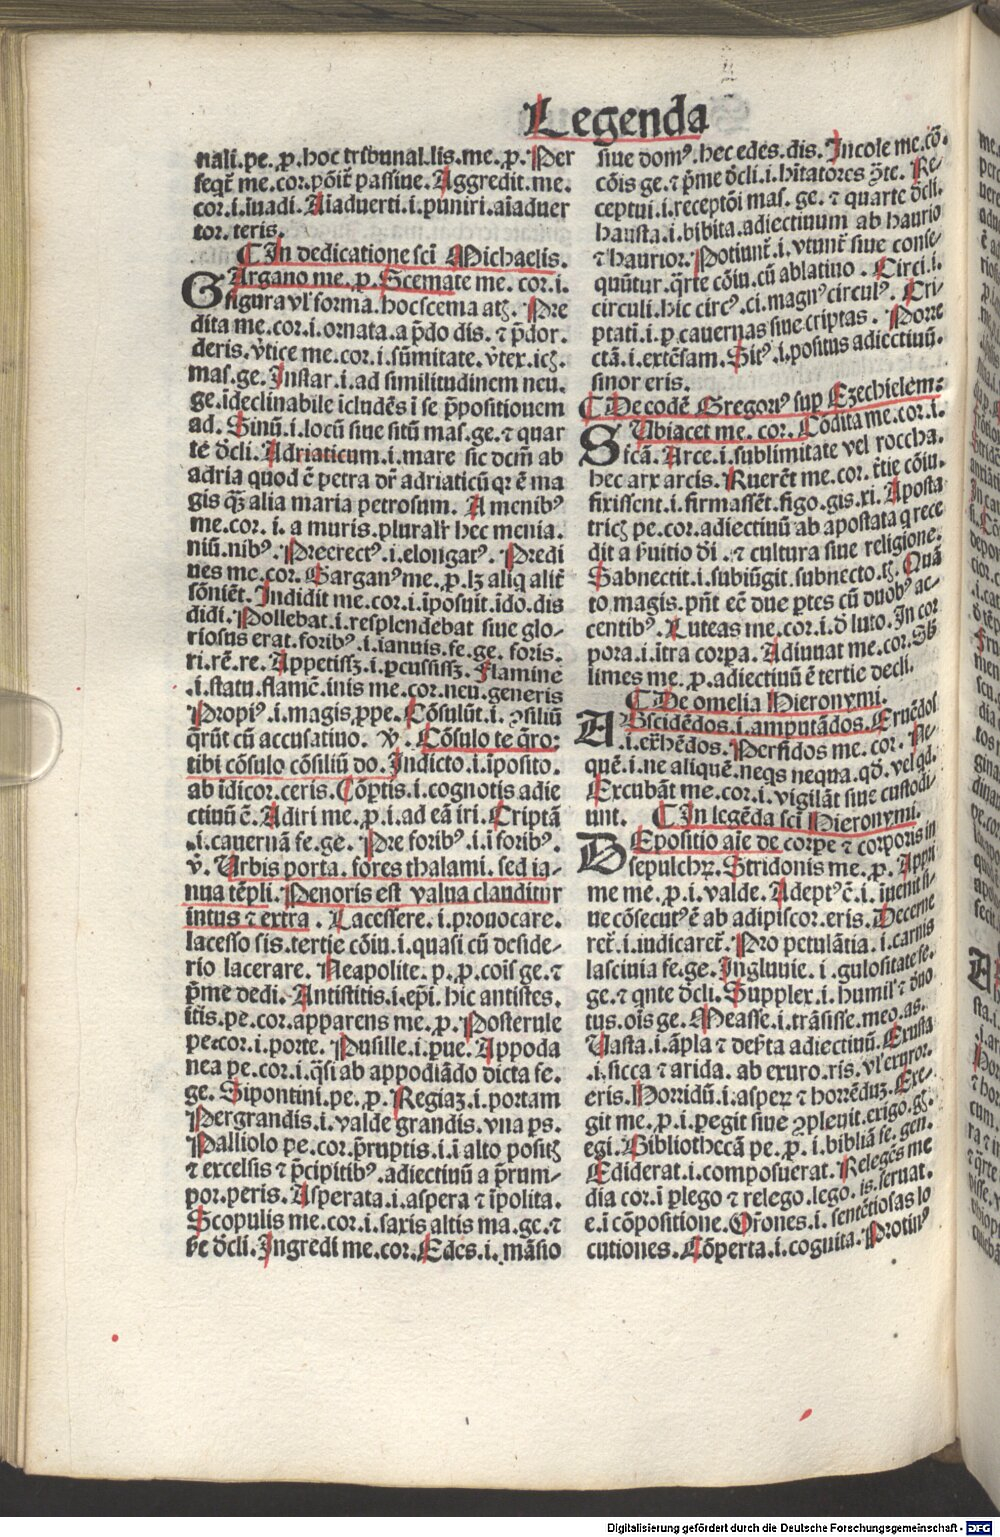 Legenda
nali.pe.ꝓ.hoc tribunal.lis.me.ꝓ.Per
seqt̃ me.cor.põit̃ passiue.Aggredit.me.
cor.i.ĩuadi.Aĩaduerti.i.puniri.aĩaduer
tor.teris.
¶ In dedicatione scĩ Michaelis.
GArgano me.ꝓ.Scemate me.cor.i.
figura vl̃ forma.hoc scema atꝭ.Pre
dita me.cor.i.ornata.a p̃do dis.⁊ p̃dor.
deris.v̾tice me.cor.i.sũmitate.v̾tex.icꝭ.
mas.ge.Instar.i.ad similitudinem neu.
ge.ĩdeclinabile ĩcludẽs ĩ se p̃positionem
ad.Sinũ.i.locũ siue sitũ mas.ge.⁊ quar
te d̃cli.Adriaticum.i.mare sic dcm̃ ab
adria quod ẽ petra dr̃ adriaticũ qꝛ ẽ ma
gis qꝫ alia maria petrosum.A menibꝰ
me.cor.i.a muris.pluralr̃ hec menia.
niũ.nibꝰ.Preerectꝰ.i.elongatꝰ.Predi
ues me.cor.Garganꝰ me.ꝓ.lꝫ aliq̃ alit̃
sõniẽt.Indidit me.cor.i.ĩposuit.ĩdo.dis
didi.Pollebat.i.resplendebat siue glo-
riosus erat.foribꝰ.i.ianuis.fe.ge.foris.
ri.rẽ.re.Appetissꝫ.i.ꝑcussissꝫ.Flamine
.i.statu.flamẽ.inis me.cor.neu.generis
Propiꝰ.i.magis ꝓpe.Cõsulũt.i.ꝯsiliũ
q̃rũt cũ accusatiuo.v̾.Cõsulo te q̃ro:
tibi cõsulo cõsiliũ do.Indicto.i.ĩposito.
ab ĩdicor.ceris.Cõꝑtis.i.cognotis adie
ctiuũ ẽ.Adiri me.ꝓ.i.ad eã iri.Criptã
.i.cauernã fe.ge.Pre foribꝰ.i.ĩ foribꝰ.
v̾.Urbis porta.fores thalami.sed ia-
nua tẽpli.Penoris est valua clauditur
intus ⁊ extra.Lacessere.i.prouocare.
lacesso sis.tertie cõiu.i.quasi cũ deside-
rio lacerare.Neapolite.p.ꝓ.cois̃ ge.⁊
p̃me dedi.Antistitis.i.ep̃i.hic antistes.
ĩtis.pe.cor.apparens me.ꝓ.Posterule
pe.cor.i.porte.Pusille.i.ꝑue.Appoda
nea pe.cor.i.q̃si ab appodiãdo dicta fe.
ge.Sipontini.pe.ꝓ.Regiaꝫ.i.portam
Pergrandis.i.valde grandis.vna ps.
Palliolo pe.cor.p̃ruptis.i.ĩ alto positꝭ
⁊ excelsis ⁊ p̃cipitibꝰ.adiectiuũ a p̃rum-
por.peris.Asperata.i.aspera ⁊ ĩpolita.
Scopulis me.cor.i.saxis altis ma.ge.⁊
ẞe d̃cli.Ingredi me.cor.Edes.i.mãsio
siue domꝰ.hec edes.dis.Incole me.cõ.
cõis ge.⁊ p̃me d̃cli.i.hĩtatores v̾te.Re-
ceptui.i.receptõi mas.ge.⁊ quarte d̃cli.
hausta.i.bibita.adiectiuum ab haurio
⁊ haurior.Potiunt̃.i.vtunt̃ siue conse-
quũtur.q̃rte cõiu.cũ ablatiuo.Circi.i.
circuli.hic circꝰ.ci.magnꝰ circulꝰ.Cri-
ptati.i.ꝑ cauernas siue criptas.Porre
ctã.i.extẽsam.Sitꝰ.i.positus adiectiuũ.
sinor eris.
¶ De eodẽ Gregoriꝰ suꝑ Ezechielẽm:
SUbiacet me.cor.Cõdita me.cor.i.
sicã.Arce.i.sublimitate vel roccha.
hec arx arcis.Ruerẽt me.cor.t̃tie cõiu.
fixissent.i.firmassẽt.figo.gis.xi.Aposta
tricꝭ pe.cor.adiectiuũ ab apostata q̃ rece
dit a s̃uitio d̃i.⁊ cultura siue religione:
Sabnectit.i.subiũgit.subnecto.tꝭ.Quã
to magis.pñt eẽ due ptes cũ duobꝰ ac-
centibꝰ.Luteas me.cor.i.d̃ luto.In cor
pora.i.ĩtra corpa.Adiuuat me.cor.Sb̃
limes me.ꝓ.adiectiuũ ẽ tertie decli.
¶ De omelia Hieronymi.
ABscidẽdos.i.amputãdos.Eruẽdos
.i.ex̃hẽdos.Perfidos me.cor.Ne-
quẽ.i.ne aliquẽ.neqs nequa.qd̃.vel qd̃.
Excubãt me.cor.i.vigilãt siue custodi-
unt.
¶ In legẽda scĩ Hieronymi.
DEpositio aĩe de corpe ⁊ corporis in
sepulchꝝ.Stridonis me.ꝓ.Appri
me me.ꝓ.i.valde.Adeptꝰ ẽ.i.ĩuenit si-
ue cõsecutꝰ ẽ ab adipiscor.eris.Decerne
ret̃.i.iudicaret̃.Pro petulãtia.i.carnis
lasciuia fe.ge.Ingluuie.i.gulositate fe.
ge.⁊ qnte d̃cli.Supplex.i.humil̃ ⁊ d̃uo
tus.ois̃ ge.Measse.i.trãsisse.meo.as.
Vasta.i.ãpla ⁊ deẞta adiectiuũ.Exusta
.i.sicca ⁊ arida.ab exuro.ris.vl̃ exuror.
eris.Horridũ.i.aspeꝝ ⁊ horrẽduꝫ.Exe-
git me.ꝓ.i.peregit siue ꝯpleuit.exigo.gꝭ.
egi.Bibliothecã pe.ꝓ.i.bibliã fe.gen.
Ediderat.i.composuerat.Relegẽs me
dia cor.i.ꝑlego ⁊ relego.lego.is.seruat.
e.i cõpositione.Or̃ones.i.sentẽtiosas lo
cutiones.Cõperta.i.cognita.Protinꝰ
Digitalisierung gefördert durch die Deutsche Forschungsgemeinschaft - DFG